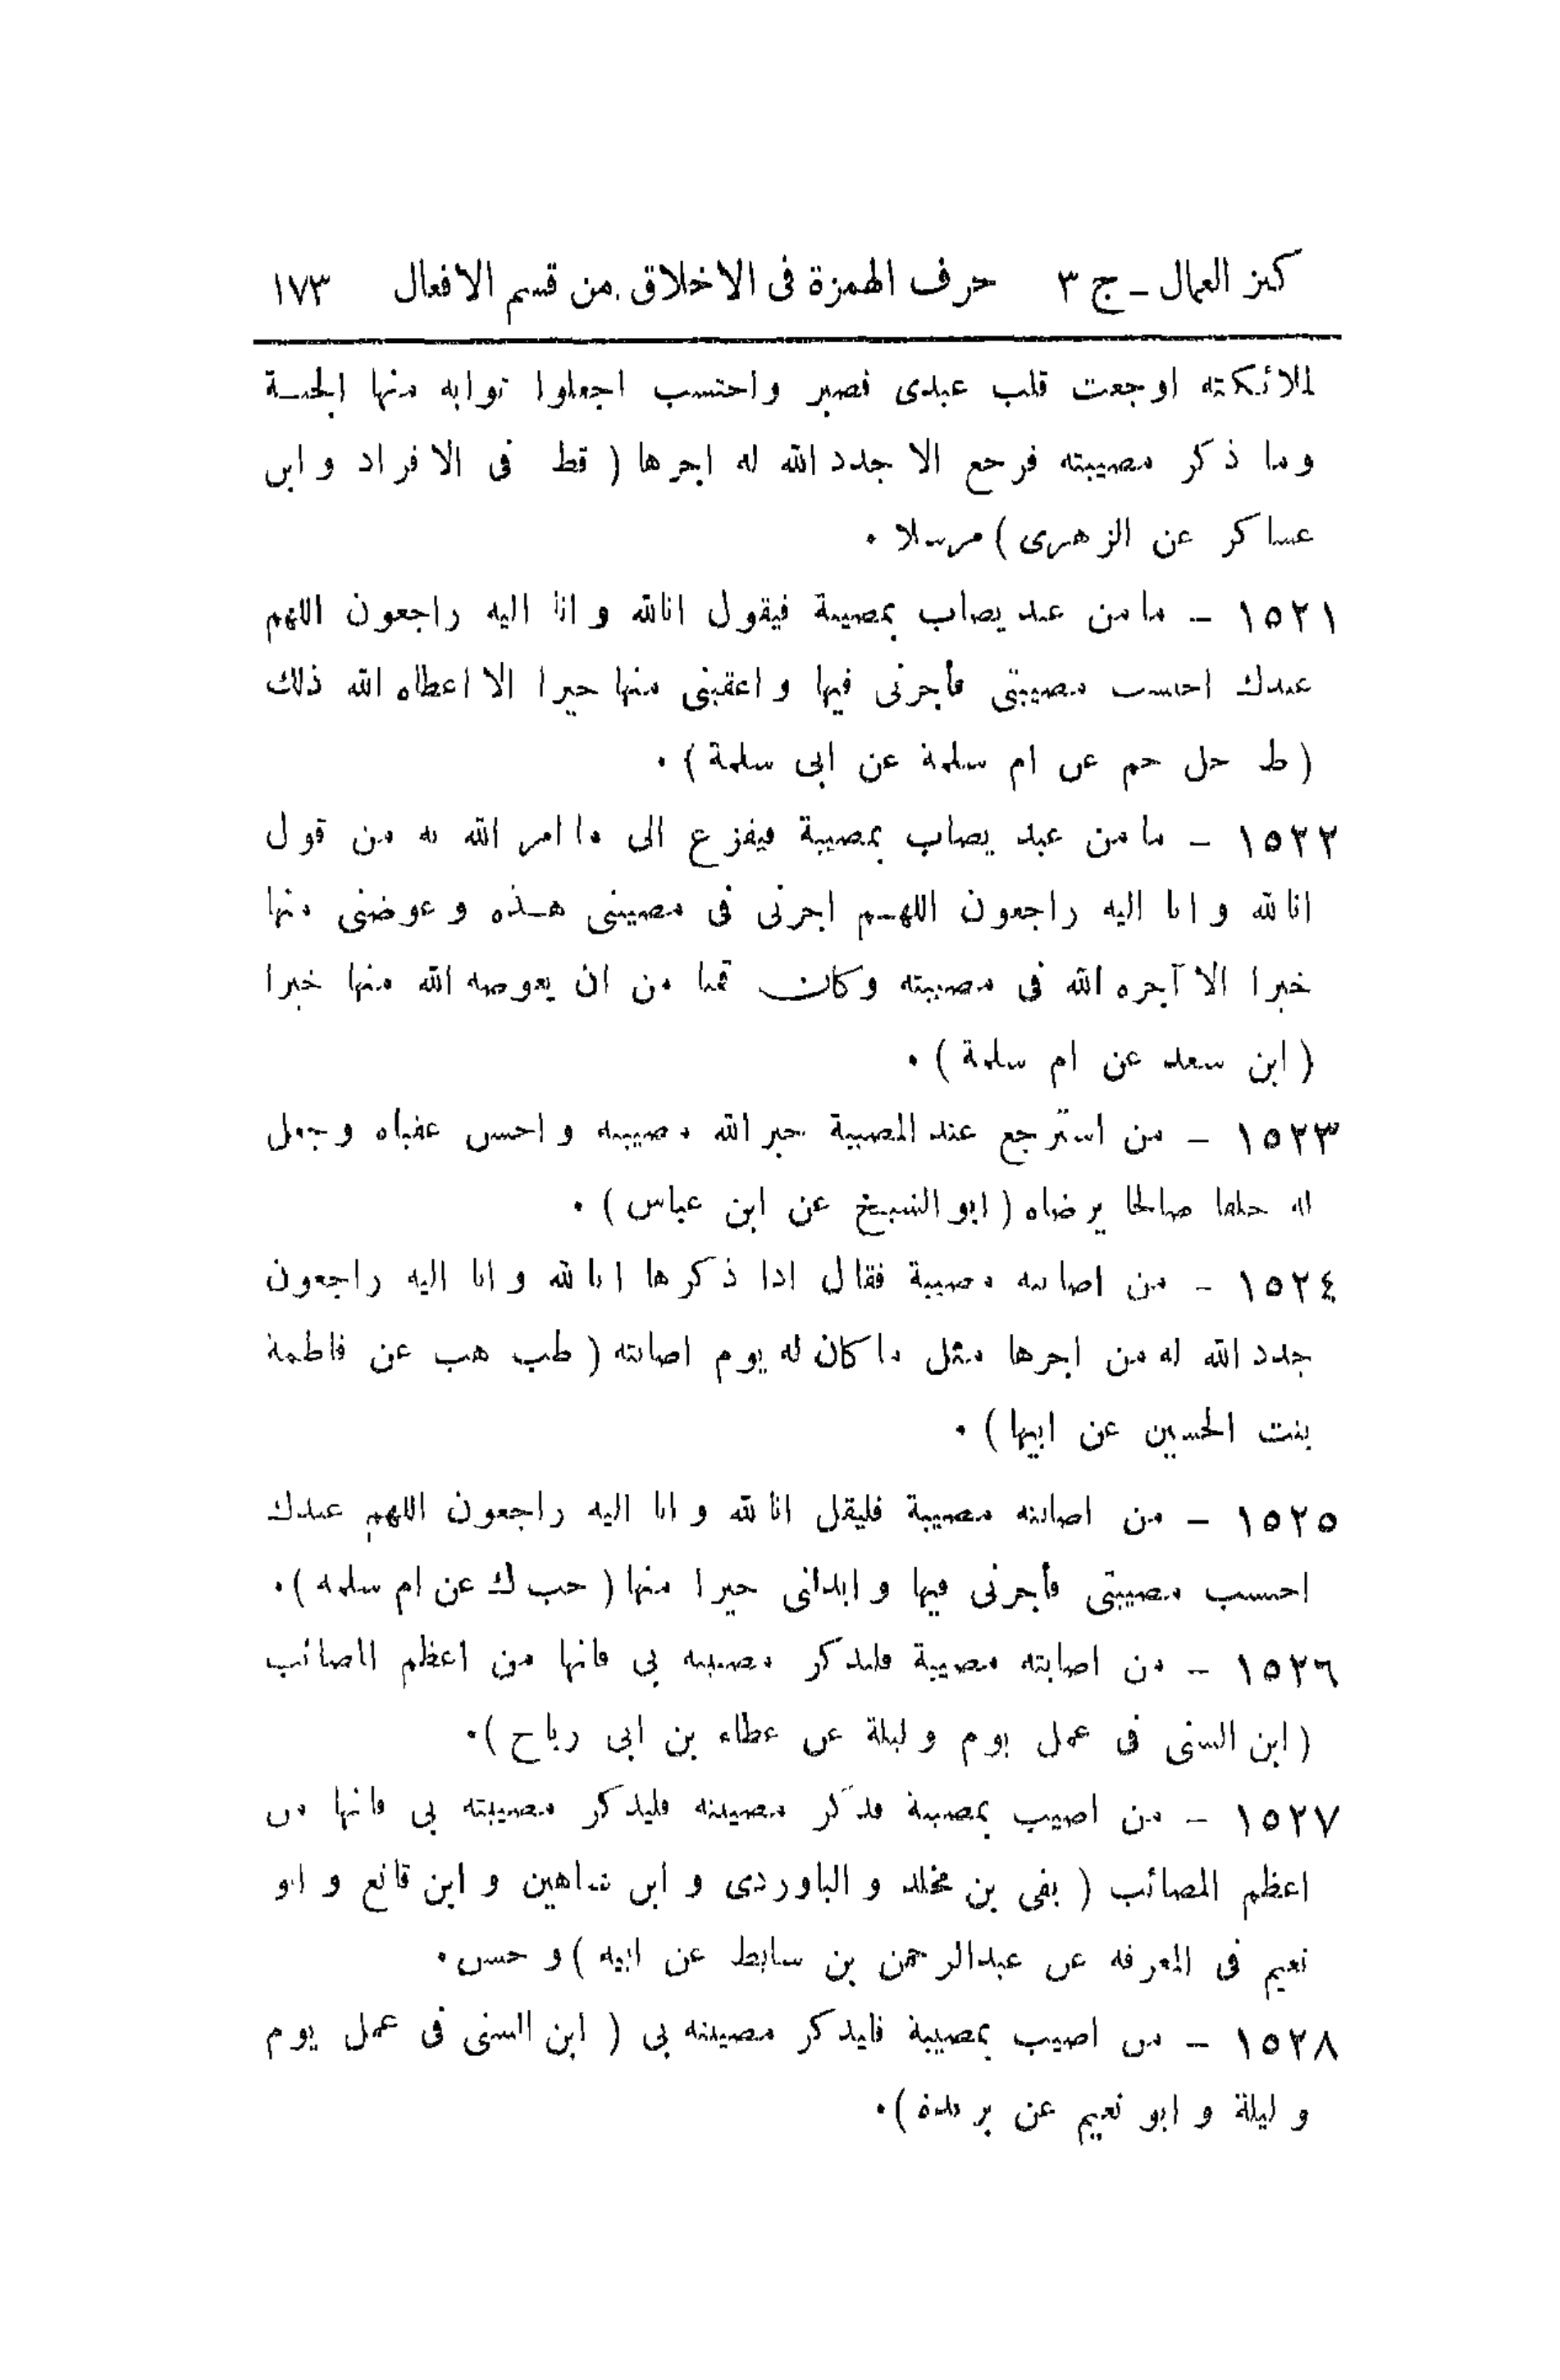 كنز العمال ـ ج ٣ حرف الهمزة فى الاخلاق من قسم الافعال ١٧٣
لملائكته اوجعت قلب عبدى فصبر واحتسب اجعلوا ثوابه منها الجنـة
وما ذكر مصيبته فرجع الا جدد الله له اجرها ( قط فى الافراد وابن
عساكر عن الزهرى ) مرسلا ٠
١٥٢١ – ما من عبد يصاب بمصيبة فيقول انا لله وانا اليه راجعون اللهم
عبدك احتسب مصيبتى فأجرنى فيها واعقبنى منها خيرا الا اعطاه الله ذلك
( ط حل حم عن ام سلمة عن ابى سلمة ) ٠
١٥٢٢ – ما من عبد يصاب بمصيبة فيفزع الى ما امر الله به من قول
انا لله وانا اليه راجعون اللهـم اجرنى فى مصيبتى هـذه وعوضنى منها
خيرا الا آجره الله فى مصيبته وكان قمنا من ان يعوضه الله منها خيرا
( ابن سعد عن ام سلمة ) ٠
١٥٢٣ – من استرجع عند المصيبة جبر الله مصيبته واحسن عقباه وجعل
له خلفا صالحا يرضاه ( ابو الشيخ عن ابن عباس ) ٠
١٥٢٤ – من اصابته مصيبة فقال اذا ذكرها انا لله وانا اليه راجعون
جدد الله له من اجرها مثل ما كان له يوم اصابته ( طب هب عن فاطمة
بنت الحسين عن ابيها ) ٠
١٥٢٥ – من اصابته مصيبة فليقل انا لله وانا اليه راجعون اللهم عبدك
احتسب مصيبتى فأجرنى فيها وابدلنى خيرا منها ( حب ك عن ام سلمه ) ٠
١٥٢٦ – من اصابته مصيبة فليذكر مصيبته بى فانها من اعظم المصائب
( ابن السنى فى عمل يوم وليلة عن عطاء بن ابى رباح ) ٠
١٥٢٧ – من اصيب بمصيبة فذكر مصيبته فليذكر مصيبته بى فانها من
اعظم المصائب ( بقى بن مخلد والباوردى وابن شاهين وابن قانع وابو
نعيم فى المعرفه عن عبدالرحمن بن سابط عن ابيه ) وحسن ٠
١٥٢٨ – من اصيب بمصيبة فليذكر مصيبته بى ( ابن السنى فى عمل يوم
وليلة وابو نعيم عن بريدة ) ٠